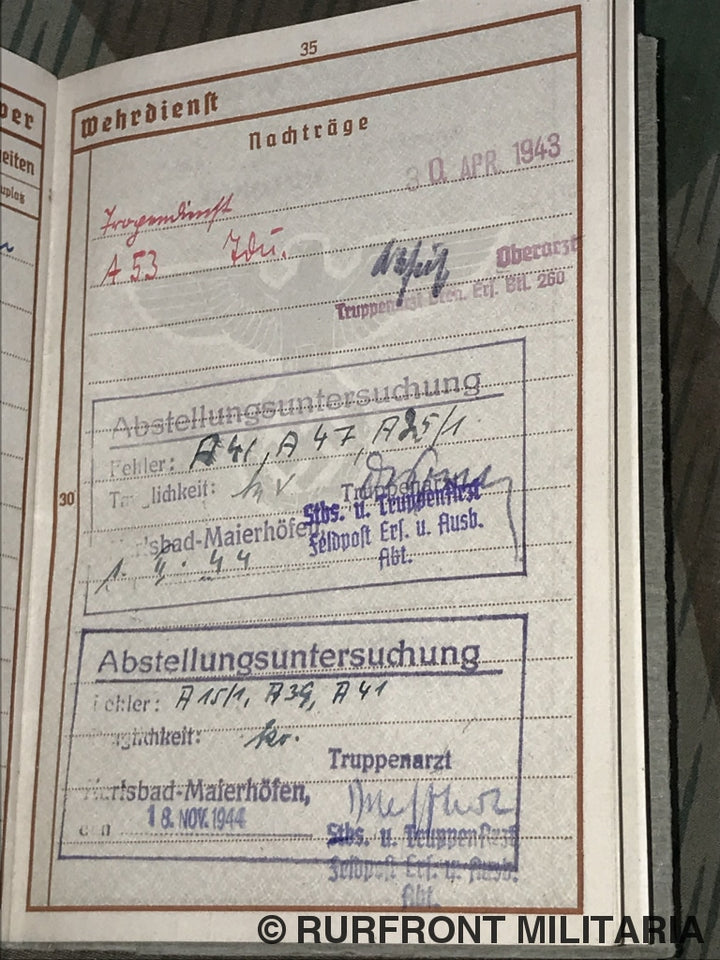 35
Wehrdienst
Nachträge
30. APR. 1943
Tropendienst
A 53
Oberarzt
Truppenarzt Ers. Btl. 260
Abstellungsuntersuchung
Fehler: A 41, A 47, A 25/1
Tauglichkeit: kv
Truppenarzt
Stbs. u. Truppenarzt
Karlsbad-Maierhöfen,
Feldpost Ers. u. Ausb.
Abt.
30
Abstellungsuntersuchung
Fehler: A 15/1, A 39, A 41
Tauglichkeit: kv.
Truppenarzt
Karlsbad-Maierhöfen,
den 18. NOV. 1944
Stbs. u. Truppenarzt
Feldpost Ers. u. Ausb.
Abt.
eiten
© RURFRONT MILITARIA